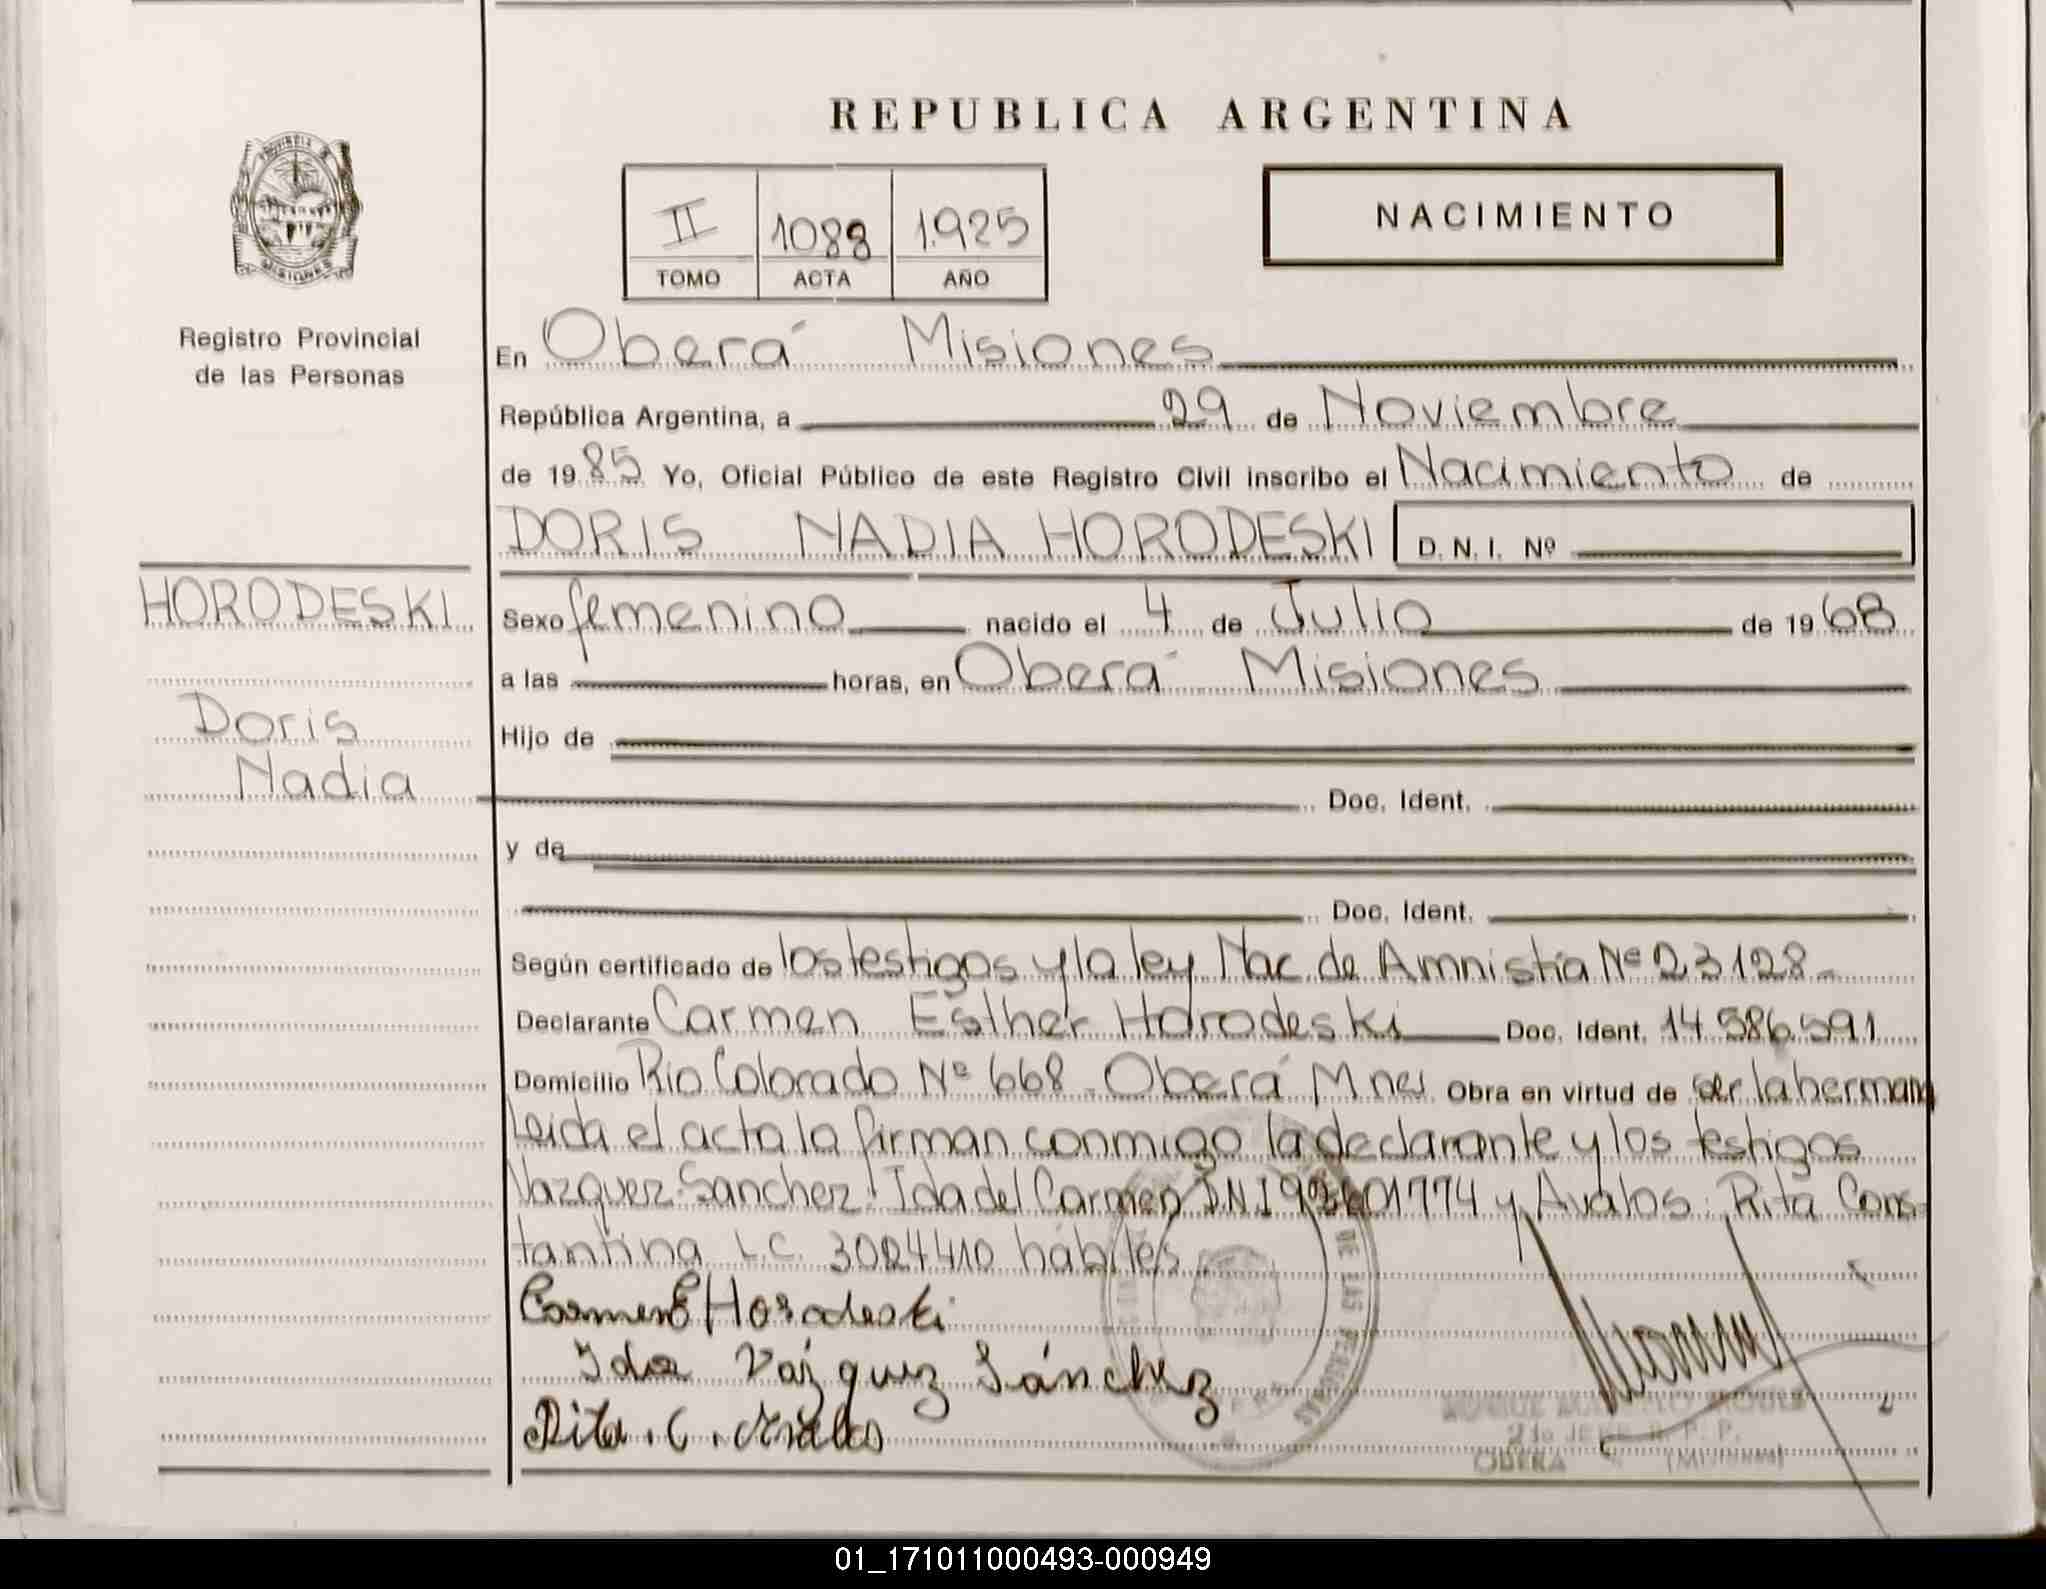 REPUBLICA ARGENTINA
PROVINCIA DE
MISIONES
Registro Provincial
de las Personas
II 1088 1.925
TOMO ACTA AÑO
NACIMIENTO
En Oberá Misiones
República Argentina, a 29 de Noviembre
de 1985 Yo, Oficial Público de este Registro Civil inscribo el Nacimiento de
DORIS NADIA HORODESKI D. N. I. Nº
HORODESKI
Doris
Nadia
Sexo femenino nacido el 4 de Julio de 1968
a las horas, en Oberá Misiones
Hijo de
Doc. Ident.
y de
Doc. Ident.
Según certificado de los testigos y la ley Nac. de Amnistía Nº 23128-
Declarante Carmen Esther Horodeski Doc. Ident. 14.586.591
Domicilio Rio Colorado Nº 668 - Oberá Mnes Obra en virtud de ser la hermana
Leida el acta la firman conmigo la declarante y los testigos
Vazquez Sanchez: Ida del Carmen D.N.I y Avalos: Rita Cons-
tantina L.C. 3024410 hábiles
DE LAS PERSONAS
Carmen E Horodeski
Ida Vázquez Sánchez
Rita. C. Avalos
JEFE R. P. P.
OBERA (Misiones)
01_171011000493-000949